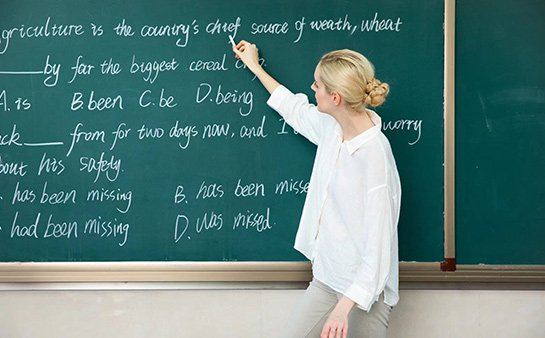 griculture is the country's chief source of weath, wheat
____ by far the biggest cereal
A. is B. been C. be D. being
ack ____ from for two days now, and I worry
bout his safely.
. has been missing B. has been misse
. had been missing D. was missed.